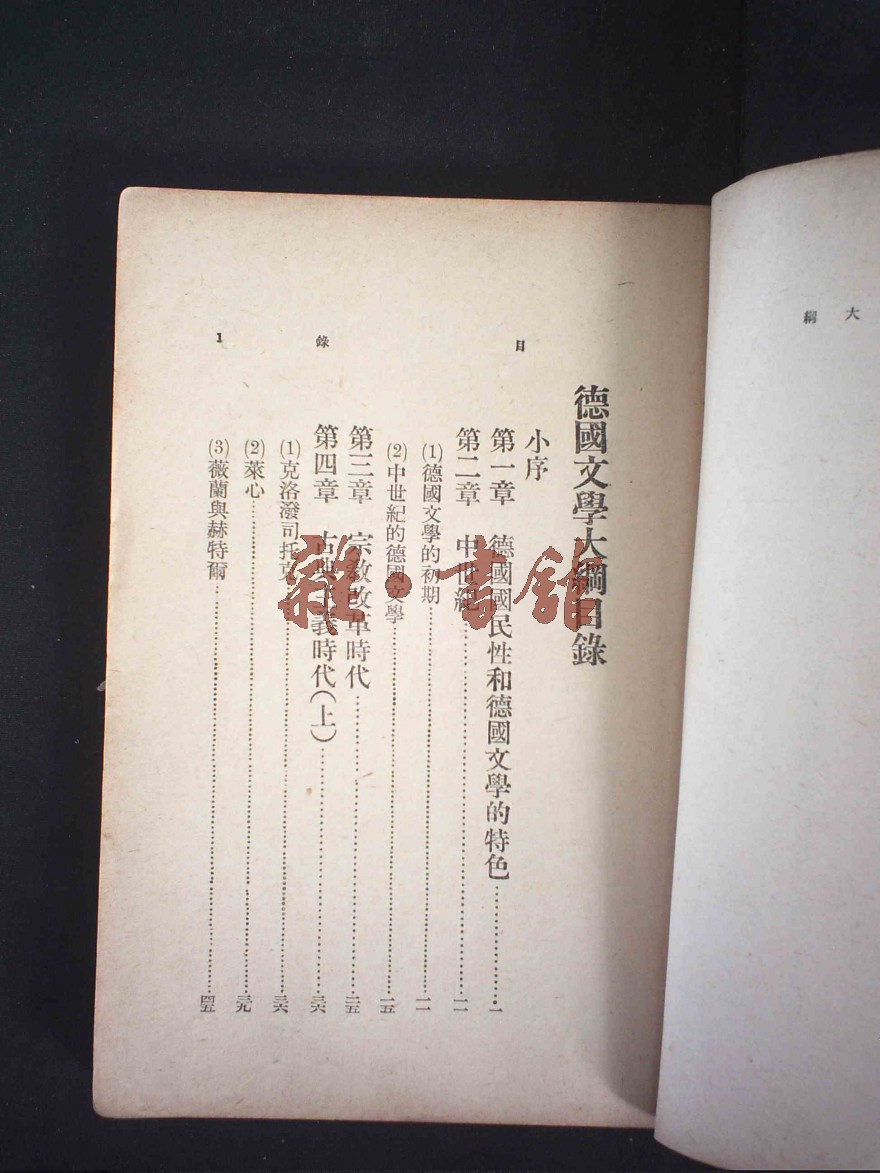 德國文學大綱目錄
小序
第一章 德國國民性和德國文學的特色……一
第二章 中世紀……一一
(1)德國文學的初期……一一
(2)中世紀的德國文學……一五
第三章 宗教改革時代……二五
第四章 古典主義時代(上)……三六
(1)克洛潑司托克……三六
(2)萊心……三九
(3)薇蘭與赫特爾……四五
目錄 1
大綱
雜·書館